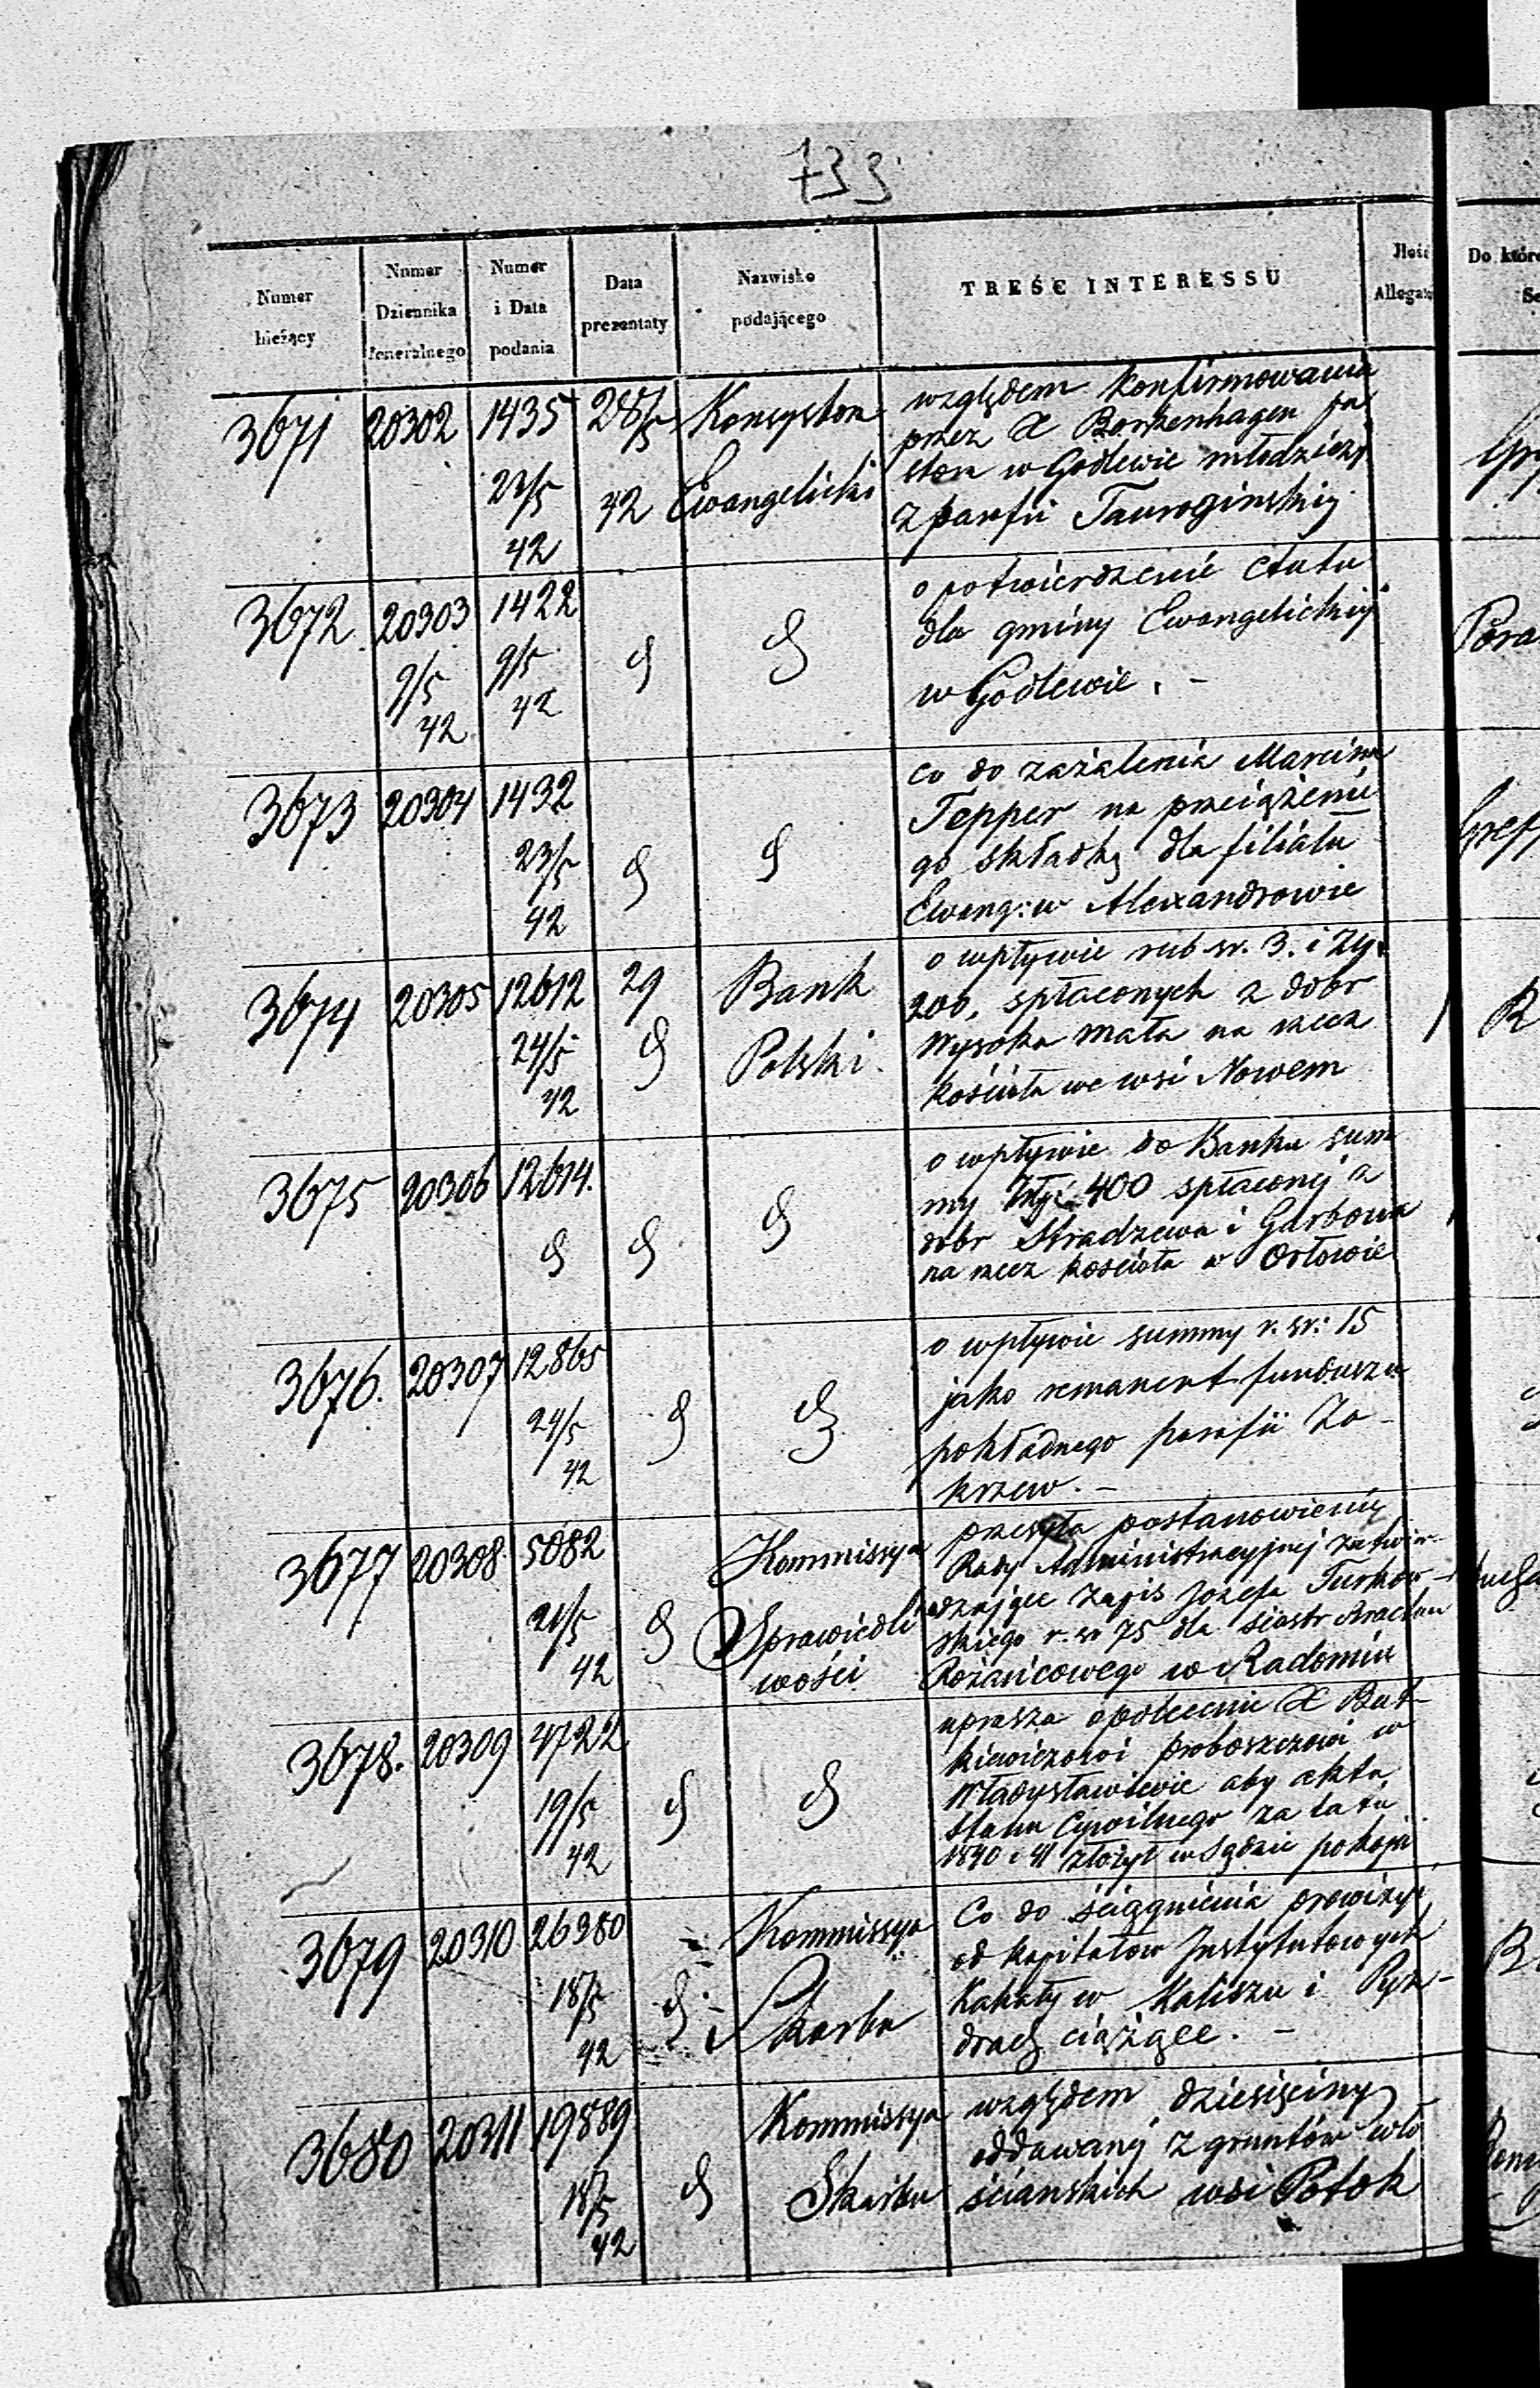 733
Numer
bieżący
Numer
Dziennika
Jeneralnego
Numer
i Data
podania
Data
prezentaty
Nazwisko
podającego
TREŚĆ INTERESSU
Ilość
Allegat
Do któr
Se
3671 20302 1435 28/5 Konsystor względem konfirmowania
przez X Borkenhagen pa
23/5 42 Ewangelicki stora w Godlewie młodzieży
42 z parafii Taurogińskiej
3672 20303 1422 o potwierdzenie etatu
9/5 9/5 dla gminy Ewangelickiej
42 42 w Godlewie. -
3673 20304 1432 co do zażalenia Marcina
Tepper na przeciążenie
23/5 go składką dla filiału
42 Ewang: w Alexandrowie
3674 20305 12612 29 Bank o wpływie rub sr. 3. i
200, spłaconych z dobr
24/5 Polski. Wysoka mała na rzecz
42 kościoła we wsi Nowem
3675 20306 12614. o wpływie do Banku sum
my 400 spłaconej z
dobr Stradzewa i Garbowa
na rzecz kościoła w Orłowie
3676. 20307 12865 o wpływie summy r. sr: 15
jako remanent funduszu
24/5 pokładnego parafii Za-
42 krzew. -
3677 20308 5082 Kommissya przesyła postanowienie
Rady Administracyjnej zatwier-
21/5 Sprawiedli dzające zapis Jozefa Turkow-
skiego r. sr 75 dla siostr Bractwa
42 wości Rożańcowego w Radomiu
3678. 20309 4722 uprasza o polecenie X But-
kiewiczowi proboszczowi w
19/5 Władysławiewie aby akta
Stanu Cywilnego za lata
42 1840 i 41 złożył w Sądzie pokoju
3679 20310 26380 Kommissya Co do ściągnienia prowizyi
od kapitałow Instytutowych
18/5 Skarbu Kahały w Kaliszu i Pyz-
42 drach ciążące. -
3680 20311 19889 Kommissya względem dziesięciny
oddawanej z gruntów wło
18/5 Skarbu ściańskich wsi Potok
42